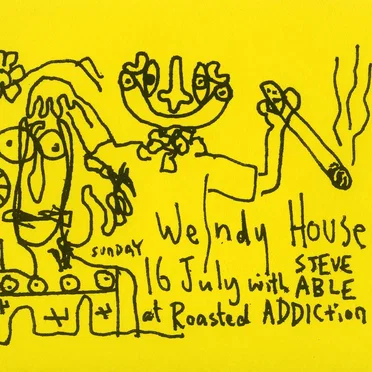 Wendy House
SUNDAY
16 July with STEVE ABLE
at Roasted ADDICtion